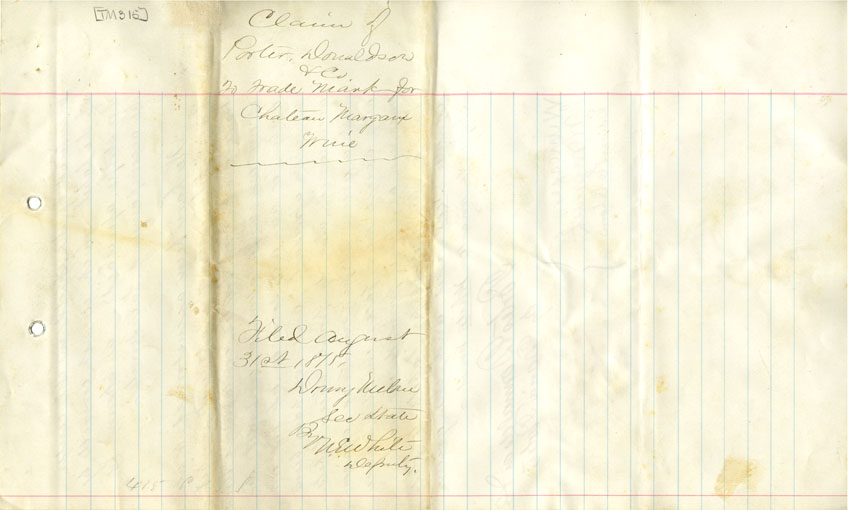 [TM315]
Claim of
Porter, Donaldson
& Co.
To Trade Mark for
Chateau Margaux
Wine
Filed August
31st 1875
Sec State
By
White
Deputy.